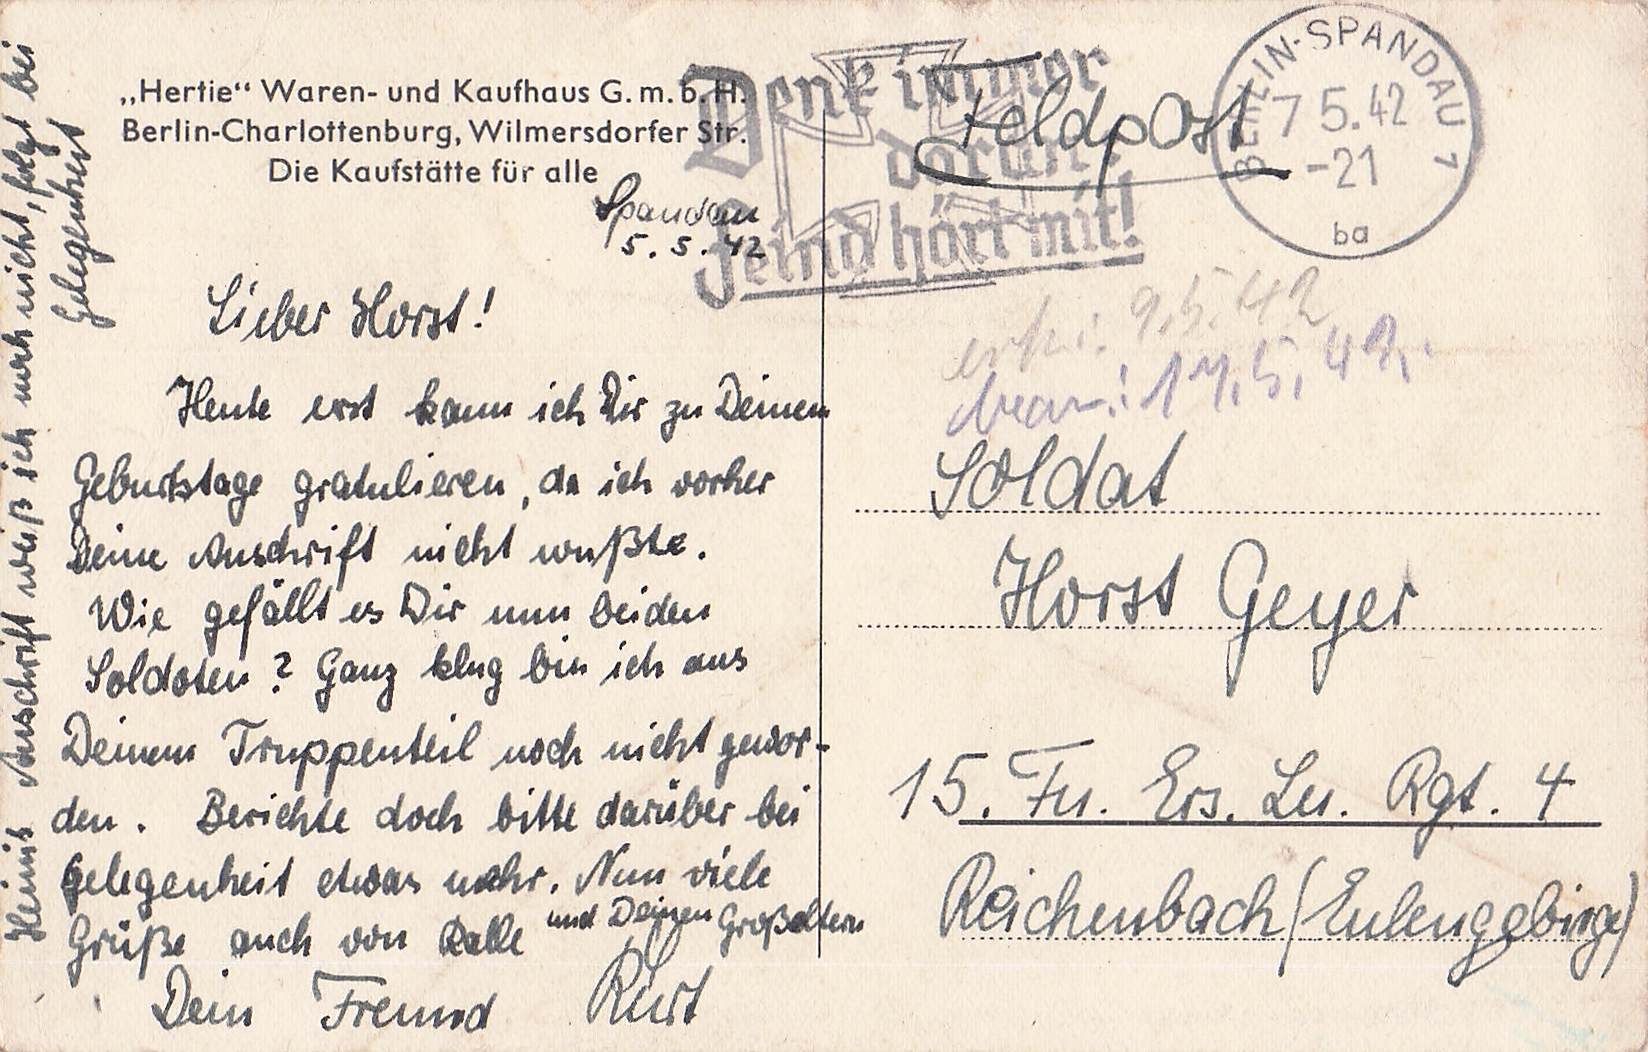 „Hertie“ Waren- und Kaufhaus G. m. b. H.
Berlin-Charlottenburg, Wilmersdorfer Str.
Die Kaufstätte für alle
Spandau
5. 5. 42
Lieber Horst!
Heute erst kann ich Dir zu Deinem
Geburtstage gratulieren, da ich vorher
Deine Anschrift nicht wußte.
Wie gefällt es Dir nun bei den
Soldaten? Ganz klug bin ich aus
Deinem Truppenteil noch nicht gewor-
den. Berichte doch bitte darüber bei
Gelegenheit etwas mehr. Nun viele
Grüße auch von Kalle und Deinen Großeltern
Dein Freund Kurt
Anschrift weiß ich noch nicht, folgt bei
Gelegenheit
Denk immer
daran:
Feind hört mit!
Feldpost
BERLIN-SPANDAU 1
7 5.42
-21
ba
erh: 9.5.42
bean: 17.5.42.
Soldat
Horst Geyer
15. Fu. Ers. Rgt. 4
Reichenbach/(Eulengebirge)